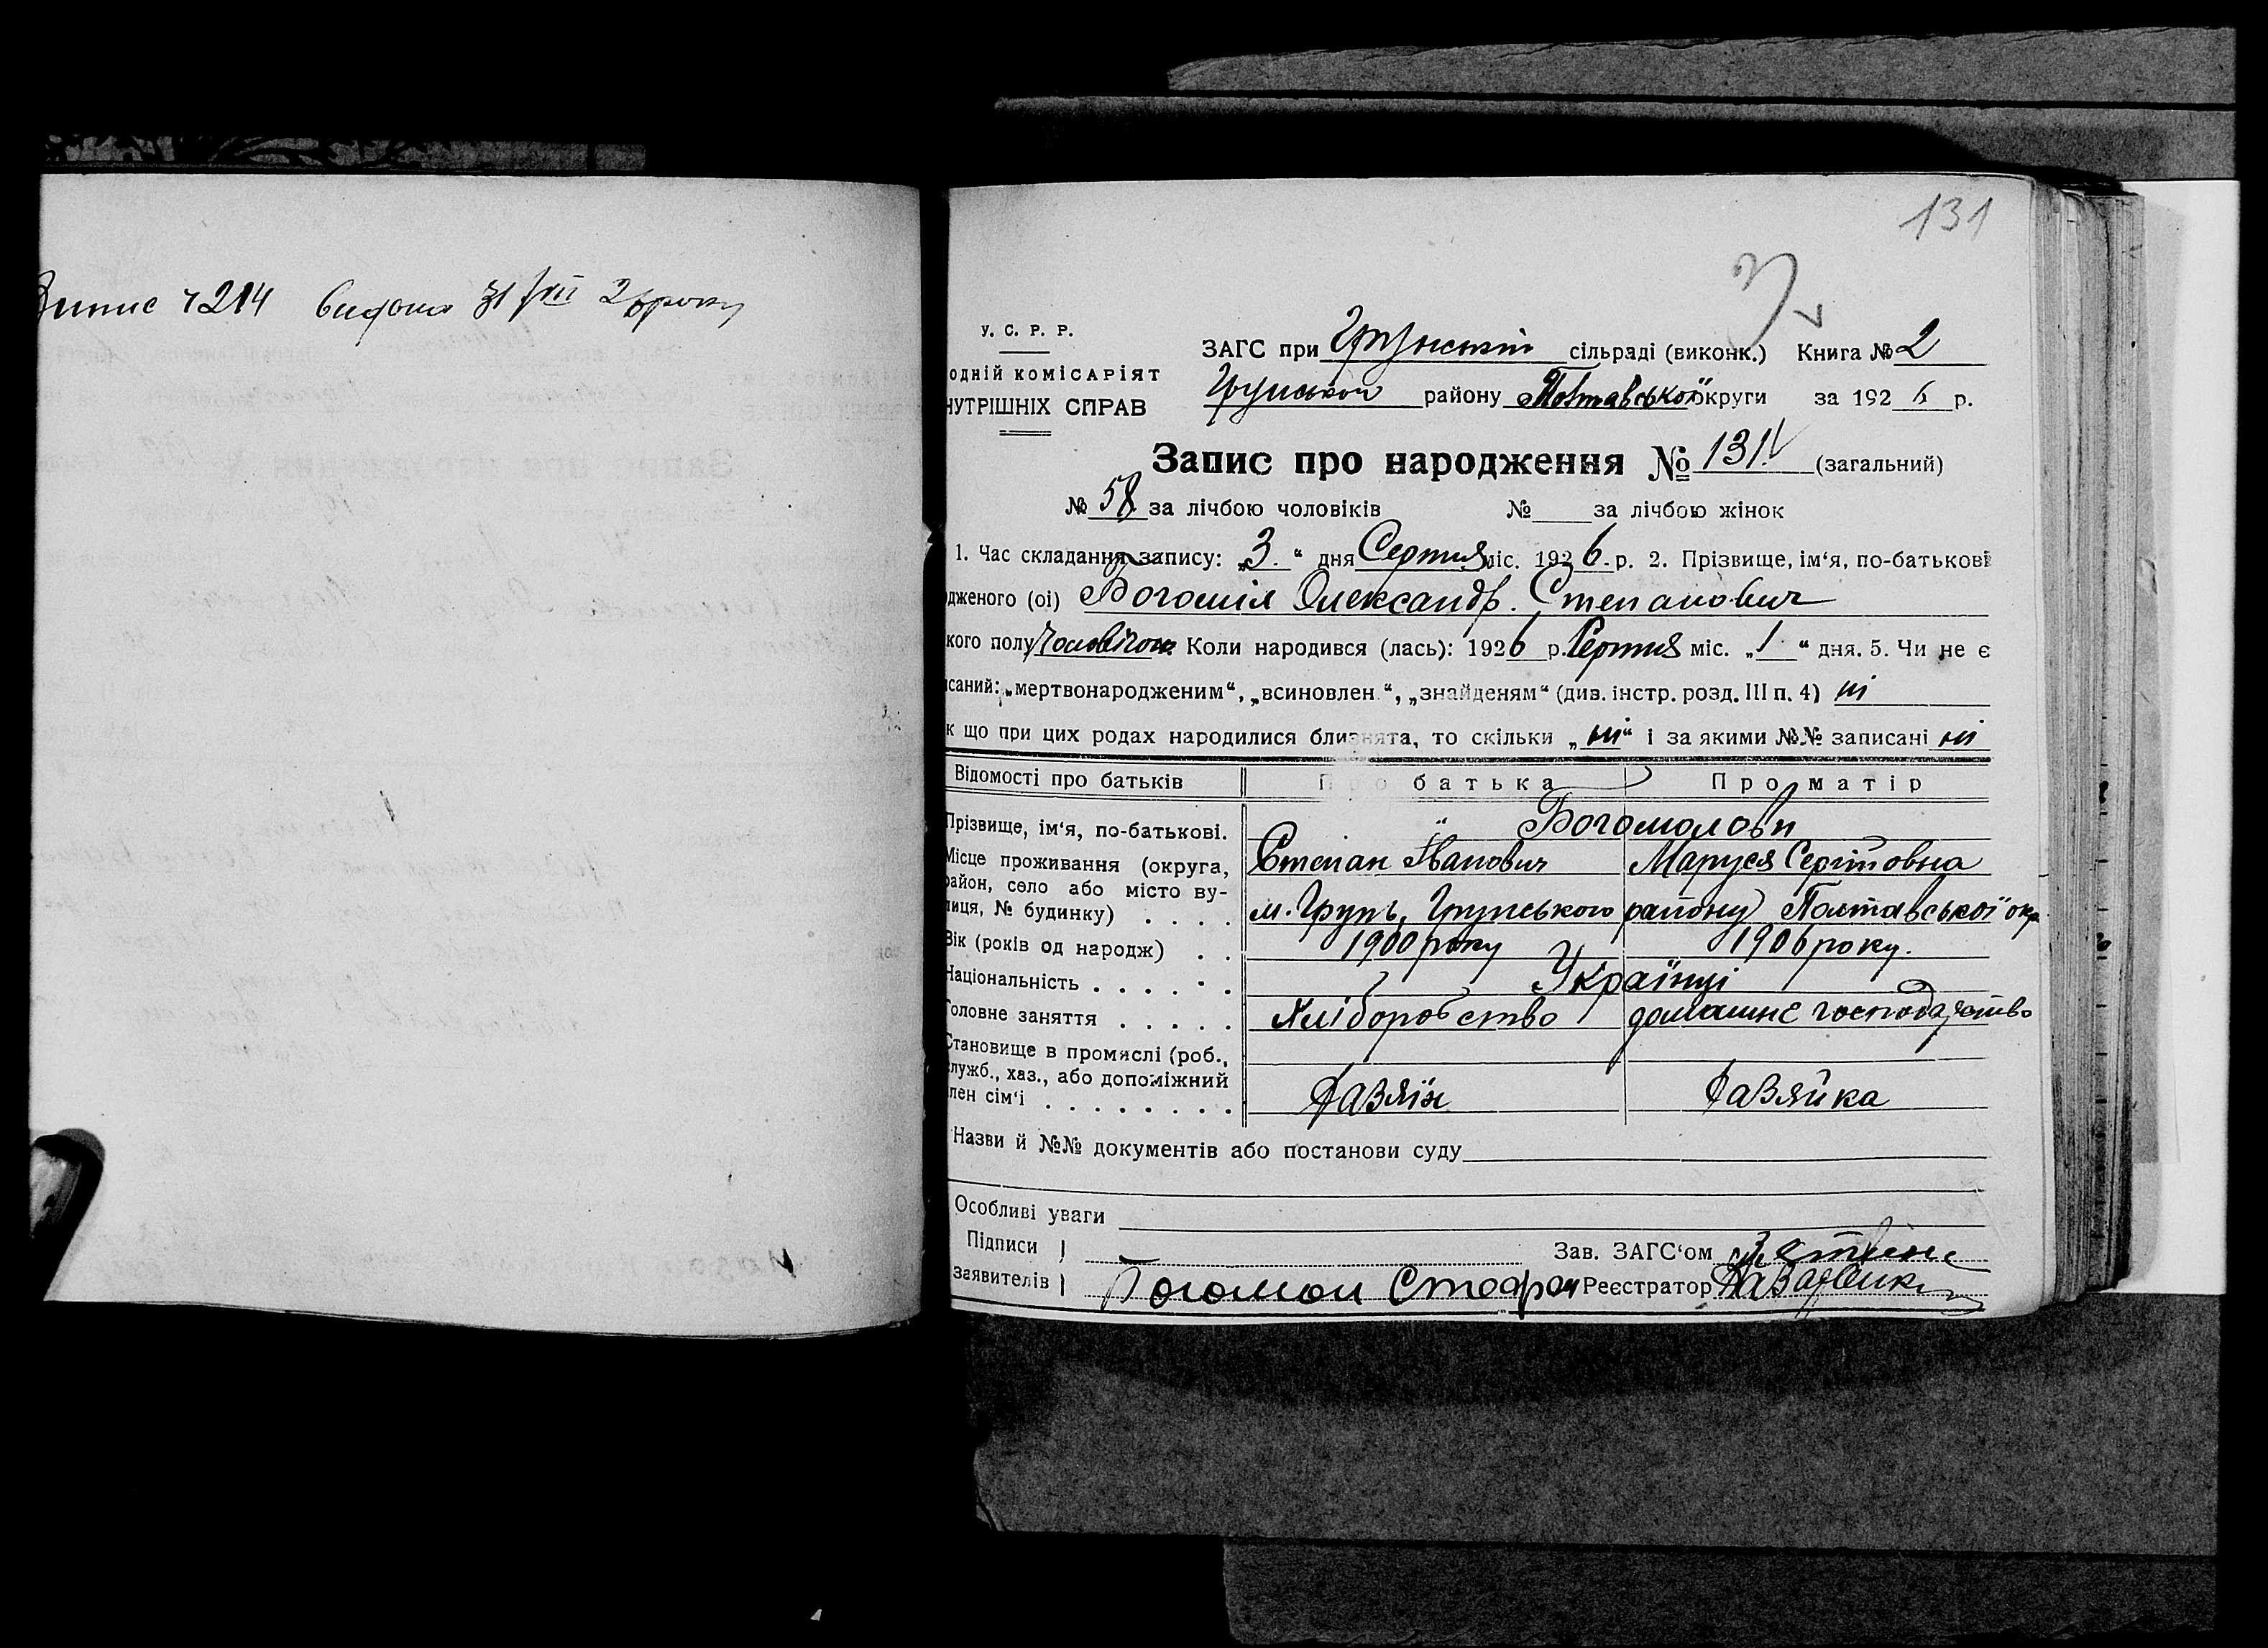 Випис ч 214 видано 31/VII 26 року
131
У. С. Р. Р.
ЗАГС при Грунській сільраді (виконк.) Книга № 2
одній комісаріят
нутрішніх справ
Грунського району Полтавської округи за 1926 р.
Запис про народження № 131 (загальний)
№ 58 за лічбою чоловіків № за лічбою жінок
1. Час складання запису: „3.“ дня Серпня міс. 1926 р. 2. Прізвище, ім‘я, по-батькові
дженого (ої) Богомол Олександр. Степанович
кого полу Чоловічого Коли народився (лась): 1926 р. Серпня міс. „1“ дня. 5. Чи не є
исаний: „мертвонародженим“, „всиновлен.“, „знайденям“ (див. інстр. розд. III п. 4) ні
к що при цих родах народилися близнята, то скільки „ні“ і за якими №№ записані ні
Відомості про батьків Про батька Про матір
Прізвище, ім‘я, по-батькові. Богомолови
Степан Іванович Маруся Сергіївна
Місце проживання (округа,
район, село або місто ву-
лиця, № будинку) . . . . м. Грунь, Грунського району Полтавської окр.
Вік (років од народж) . . 1900 року 1906 року.
Національність . . . . . . Українці
Головне заняття . . . . . Хліборобство домашнє господарство
Становище в промислі (роб.,
служб., хаз., або допоміжний
лен сім‘ї . . . . . . . . Хазяїн Хазяйка
Назви й №№ документів або постанови суду
Особливі уваги
Підписи Зав. ЗАГС‘ом
заявителів Богомол Стефан Реєстратор